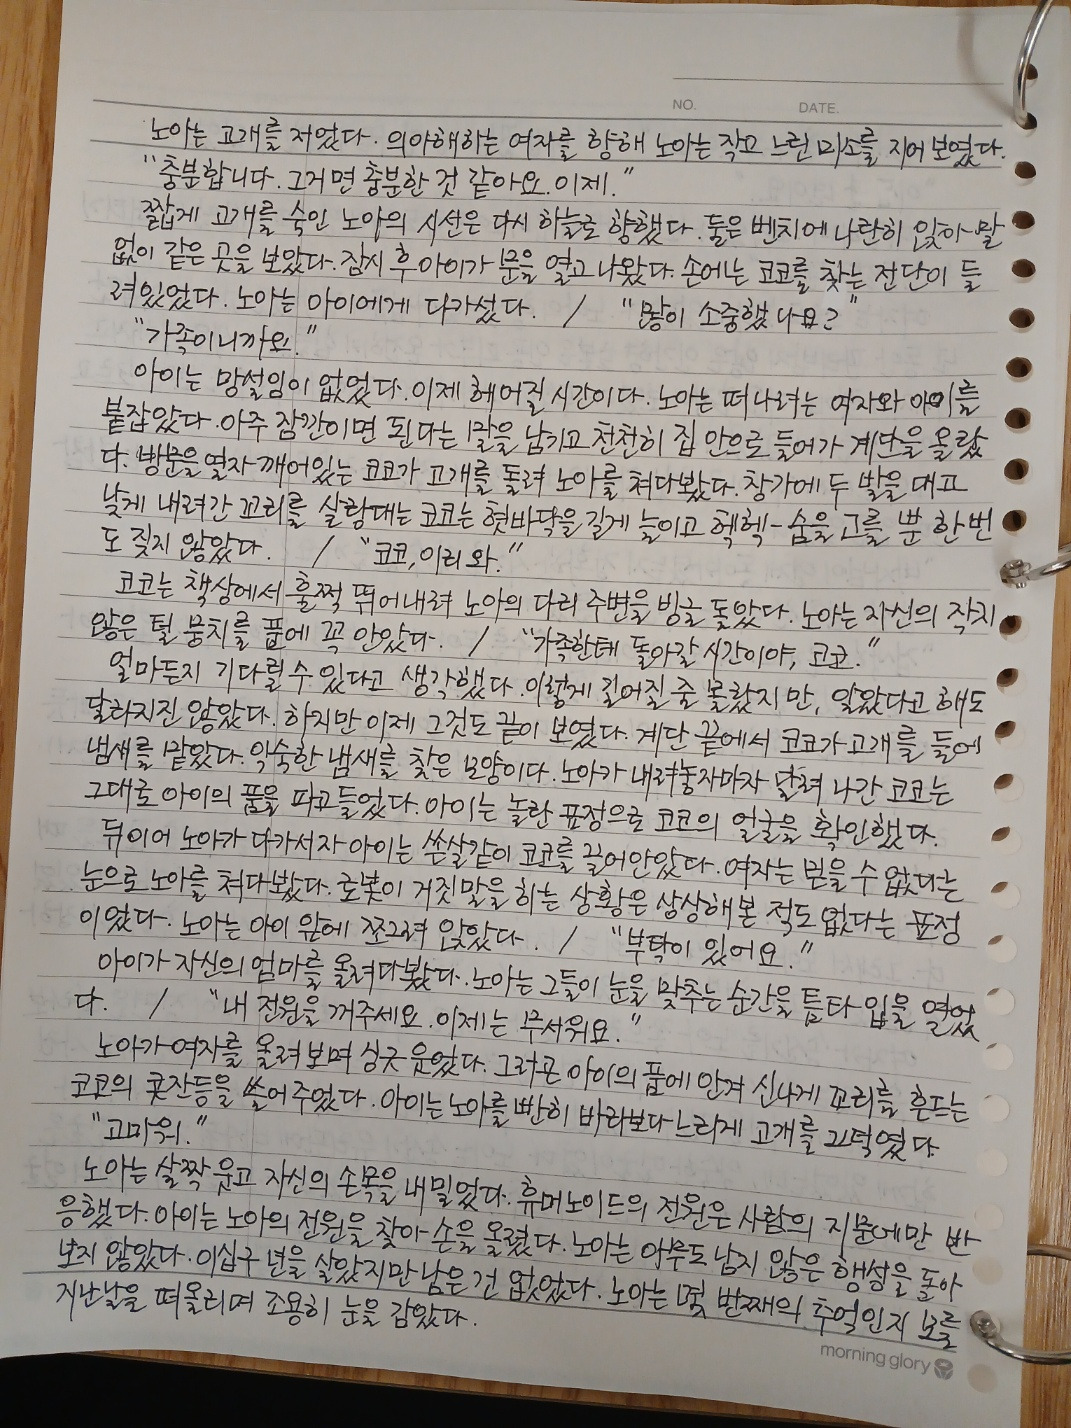 NO. DATE.
노아는 고개를 저었다. 의아해하는 여자를 향해 노아는 작고 느린 미소를 지어 보였다.
"충분합니다. 그거면 충분한 것 같아요. 이제."
짧게 고개를 숙인 노아의 시선은 다시 하늘로 향했다. 둘은 벤치에 나란히 앉아 말
없이 같은 곳을 보았다. 잠시 후 아이가 문을 열고 나왔다. 손에는 코코를 찾는 전단이 들
려있었다. 노아는 아이에게 다가섰다. / "많이 소중했나요?"
"가족이니까요."
아이는 망설임이 없었다. 이제 헤어질 시간이다. 노아는 떠나려는 여자와 아이를
붙잡았다. 아주 잠깐이면 된다는 말을 남기고 천천히 집 안으로 들어가 계단을 올랐
다. 방문을 열자 깨어있는 코코가 고개를 돌려 노아를 쳐다봤다. 창가에 두 발을 대고
낮게 내려간 꼬리를 살랑대는 코코는 혓바닥을 길게 늘이고 헥헥- 숨을 고를 뿐 한 번
도 짖지 않았다. / "코코, 이리 와."
코코는 책상에서 훌쩍 뛰어내려 노아의 다리 주변을 빙글 돌았다. 노아는 자신의 작지
않은 털 뭉치를 품에 꼭 안았다. / "가족한테 돌아갈 시간이야, 코코."
얼마든지 기다릴 수 있다고 생각했다. 이렇게 길어질 줄 몰랐지만, 알았다고 해도
달라지진 않았다. 하지만 이제 그것도 끝이 보였다. 계단 끝에서 코코가 고개를 들어
냄새를 맡았다. 익숙한 냄새를 찾은 모양이다. 노아가 내려놓자마자 달려 나간 코코는
그대로 아이의 품을 파고들었다. 아이는 놀란 표정으로 코코의 얼굴을 확인했다.
뒤이어 노아가 다가서자 아이는 쏜살같이 코코를 끌어안았다. 여자는 믿을 수 없다는
눈으로 노아를 쳐다봤다. 로봇이 거짓말을 하는 상황은 상상해본 적도 없다는 표정
이었다. 노아는 아이 앞에 쪼그려 앉았다. / "부탁이 있어요."
아이가 자신의 엄마를 올려다봤다. 노아는 그들이 눈을 맞추는 순간을 틈타 입을 열었
다. / "내 전원을 꺼주세요. 이제는 무서워요."
노아가 여자를 올려보며 싱긋 웃었다. 그러곤 아이의 품에 안겨 신나게 꼬리를 흔드는
코코의 콧잔등을 쓸어주었다. 아이는 노아를 빤히 바라보다 느리게 고개를 끄덕였다.
"고마워."
노아는 살짝 웃고 자신의 손목을 내밀었다. 휴머노이드의 전원은 사람의 지문에만 반
응했다. 아이는 노아의 전원을 찾아 손을 올렸다. 노아는 아무도 남지 않은 행성을 돌아
보지 않았다. 이십구 년을 살았지만 남은 건 없었다. 노아는 몇 번째의 추억인지 모를
지난날을 떠올리며 조용히 눈을 감았다.
morning glory